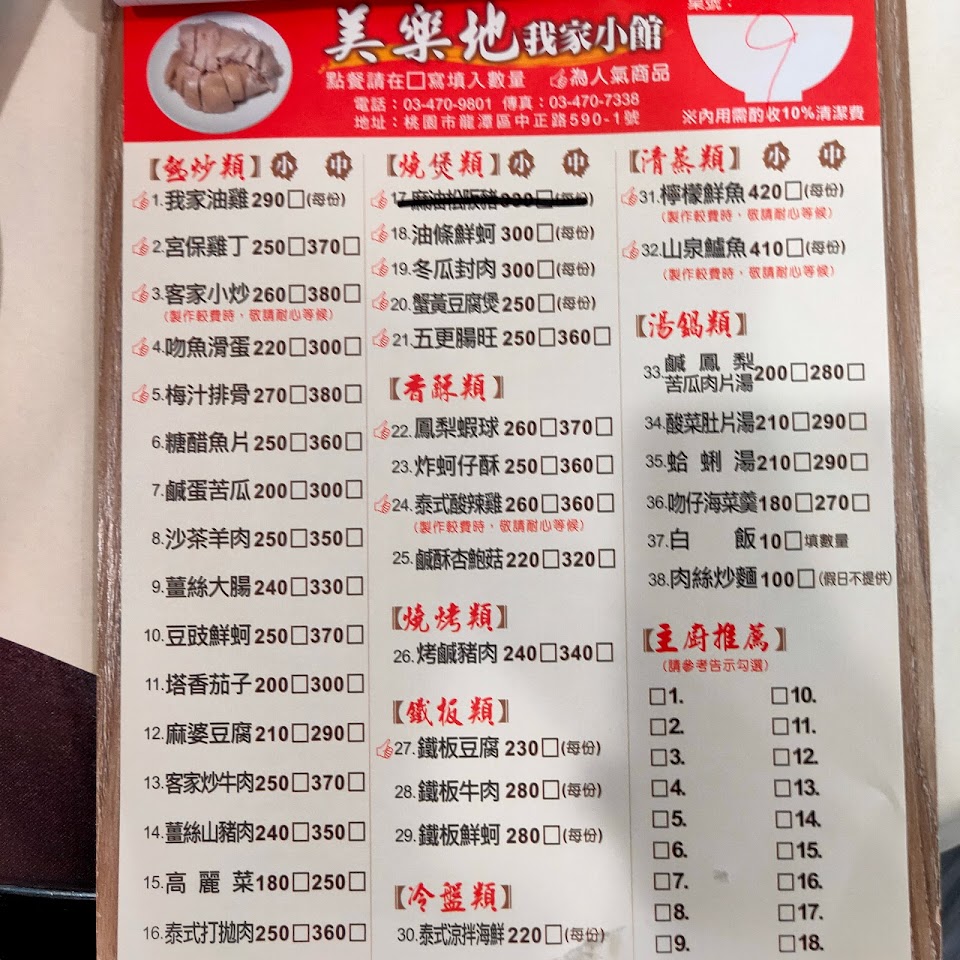 美樂地我家小館
點餐請在□寫填入數量 為人氣商品
電話：03-470-9801 傳真：03-470-7338
地址：桃園市龍潭區中正路590-1號
桌號：
9
※內用需酌收10%清潔費
【熱炒類】小 中
1.我家油雞290□(每份)
2.宮保雞丁250□370□
3.客家小炒260□380□
(製作較費時，敬請耐心等候)
4.吻魚滑蛋220□300□
5.梅汁排骨270□380□
6.糖醋魚片250□360□
7.鹹蛋苦瓜200□300□
8.沙茶羊肉250□350□
9.薑絲大腸240□330□
10.豆豉鮮蚵250□370□
11.塔香茄子200□300□
12.麻婆豆腐210□290□
13.客家炒牛肉250□370□
14.薑絲山豬肉240□350□
15.高麗菜180□250□
16.泰式打拋肉250□360□
【燒煲類】小 中
17.麻油松阪豬 □(每份)
18.油條鮮蚵300□(每份)
19.冬瓜封肉300□(每份)
20.蟹黃豆腐煲250□(每份)
21.五更腸旺250□360□
【香酥類】
22.鳳梨蝦球260□370□
23.炸蚵仔酥250□360□
24.泰式酸辣雞260□360□
(製作較費時，敬請耐心等候)
25.鹹酥杏鮑菇220□320□
【燒烤類】
26.烤鹹豬肉240□340□
【鐵板類】
27.鐵板豆腐230□(每份)
28.鐵板牛肉280□(每份)
29.鐵板鮮蚵280□(每份)
【冷盤類】
30.泰式涼拌海鮮220□(每份)
【清蒸類】小 中
31.檸檬鮮魚420□(每份)
(製作較費時，敬請耐心等候)
32.山泉鱸魚410□(每份)
(製作較費時，敬請耐心等候)
【湯鍋類】
33.鹹鳳梨
苦瓜肉片湯200□280□
34.酸菜肚片湯210□290□
35.蛤蜊湯210□290□
36.吻仔海菜羹180□270□
37.白飯10□填數量
38.肉絲炒麵100□(假日不提供)
【主廚推薦】
(請參考告示勾選)
□1. □10.
□2. □11.
□3. □12.
□4. □13.
□5. □14.
□6. □15.
□7. □16.
□8. □17.
□9. □18.